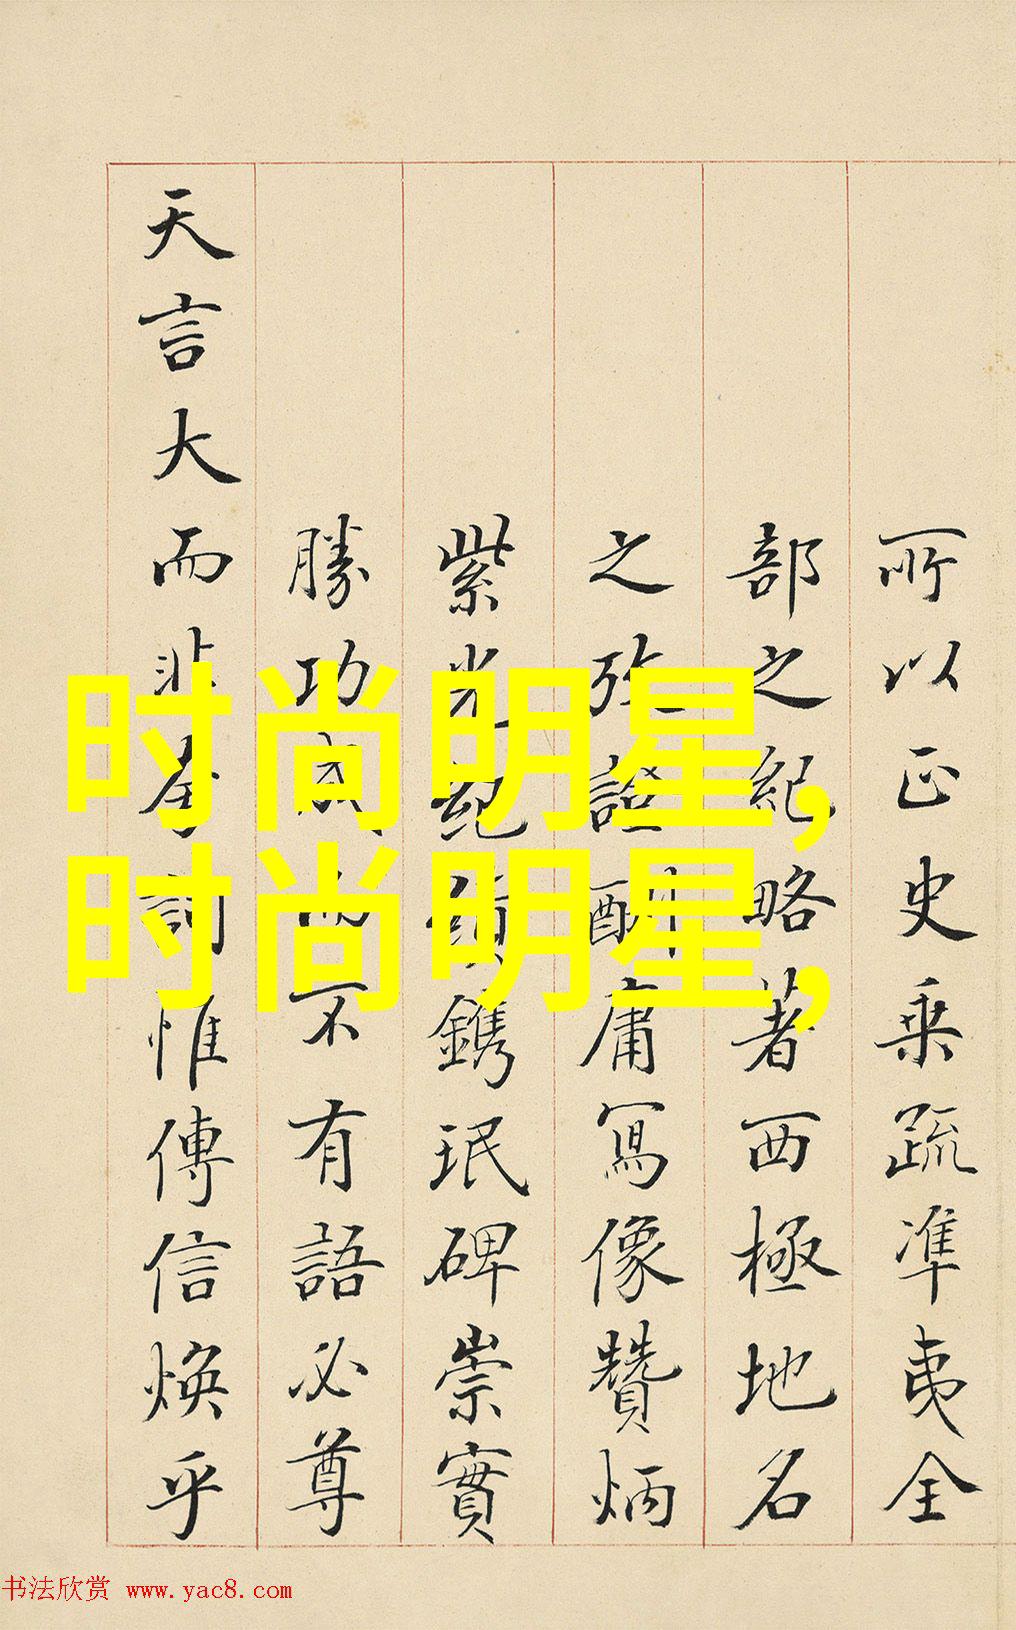 所以正史乗疏準夷全
部之紀略著西極地名
之酬庸寫像贊炳
紫光紀績鐫珉碑崇實
勝功成而不有語必尊
天言大而非夸詞惟傳信煥乎
时尚明星,
时尚明星,
书法欣赏 www.yac8.com